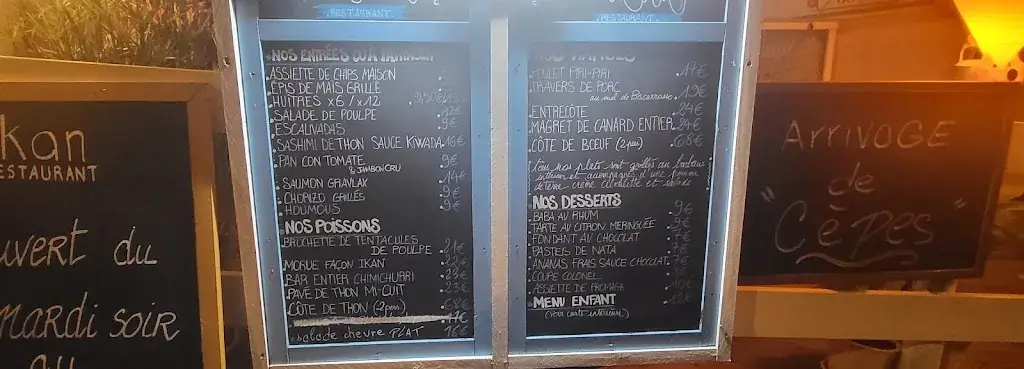 kan
RESTAURANT
uvert du
Mardi soir
au
RESTAURANT
NOS ENTRÉES OU À PARTAGER
ASSIETTE DE CHIPS MAISON
ÉPIS DE MAIS GRILLÉ
HUÎTRES x6 / x12
SALADE DE POULPE 12€
ESCALIVADAS 9€
SASHIMI DE THON SAUCE KIWADA 16€
PAN CON TOMATE 9€
& JAMBON CRU 14€
SAUMON GRAVLAX
CHORIZO GRILLÉS 9€
HOUMOUS 9€
NOS POISSONS
BROCHETTE DE TENTACULES
DE POULPE 21€
MORUE FAÇON IKAN 22€
BAR ENTIER CHIMICHURRI 23€
PAVÉ DE THON MI-CUIT 23€
CÔTE DE THON (2 pers) 68€
17€
salade chèvre PLAT 16€
RESTAURANT
NOS VIANDES
POULET PIRI-PIRI 17€
TRAVERS DE PORC
au miel de Biscarrosse 19€
ENTRECÔTE 24€
MAGRET DE CANARD ENTIER 24€
CÔTE DE BŒUF (2 pers) 68€
tous nos plats sont grillés au barbecue
et accompagnés d'une pomme
de terre crème ciboulette et salade
NOS DESSERTS
BABA AU RHUM 9€
TARTE AU CITRON MERINGUÉE 9€
FONDANT AU CHOCOLAT 7€
PASTEIS DE NATA 7€
ANANAS FRAIS SAUCE CHOCOLAT 7€
COUPE COLONEL
ASSIETTE DE FROMAGE
MENU ENFANT 12€
(voir carte intérieure)
ARRIVAGE
de
"Cèpes"